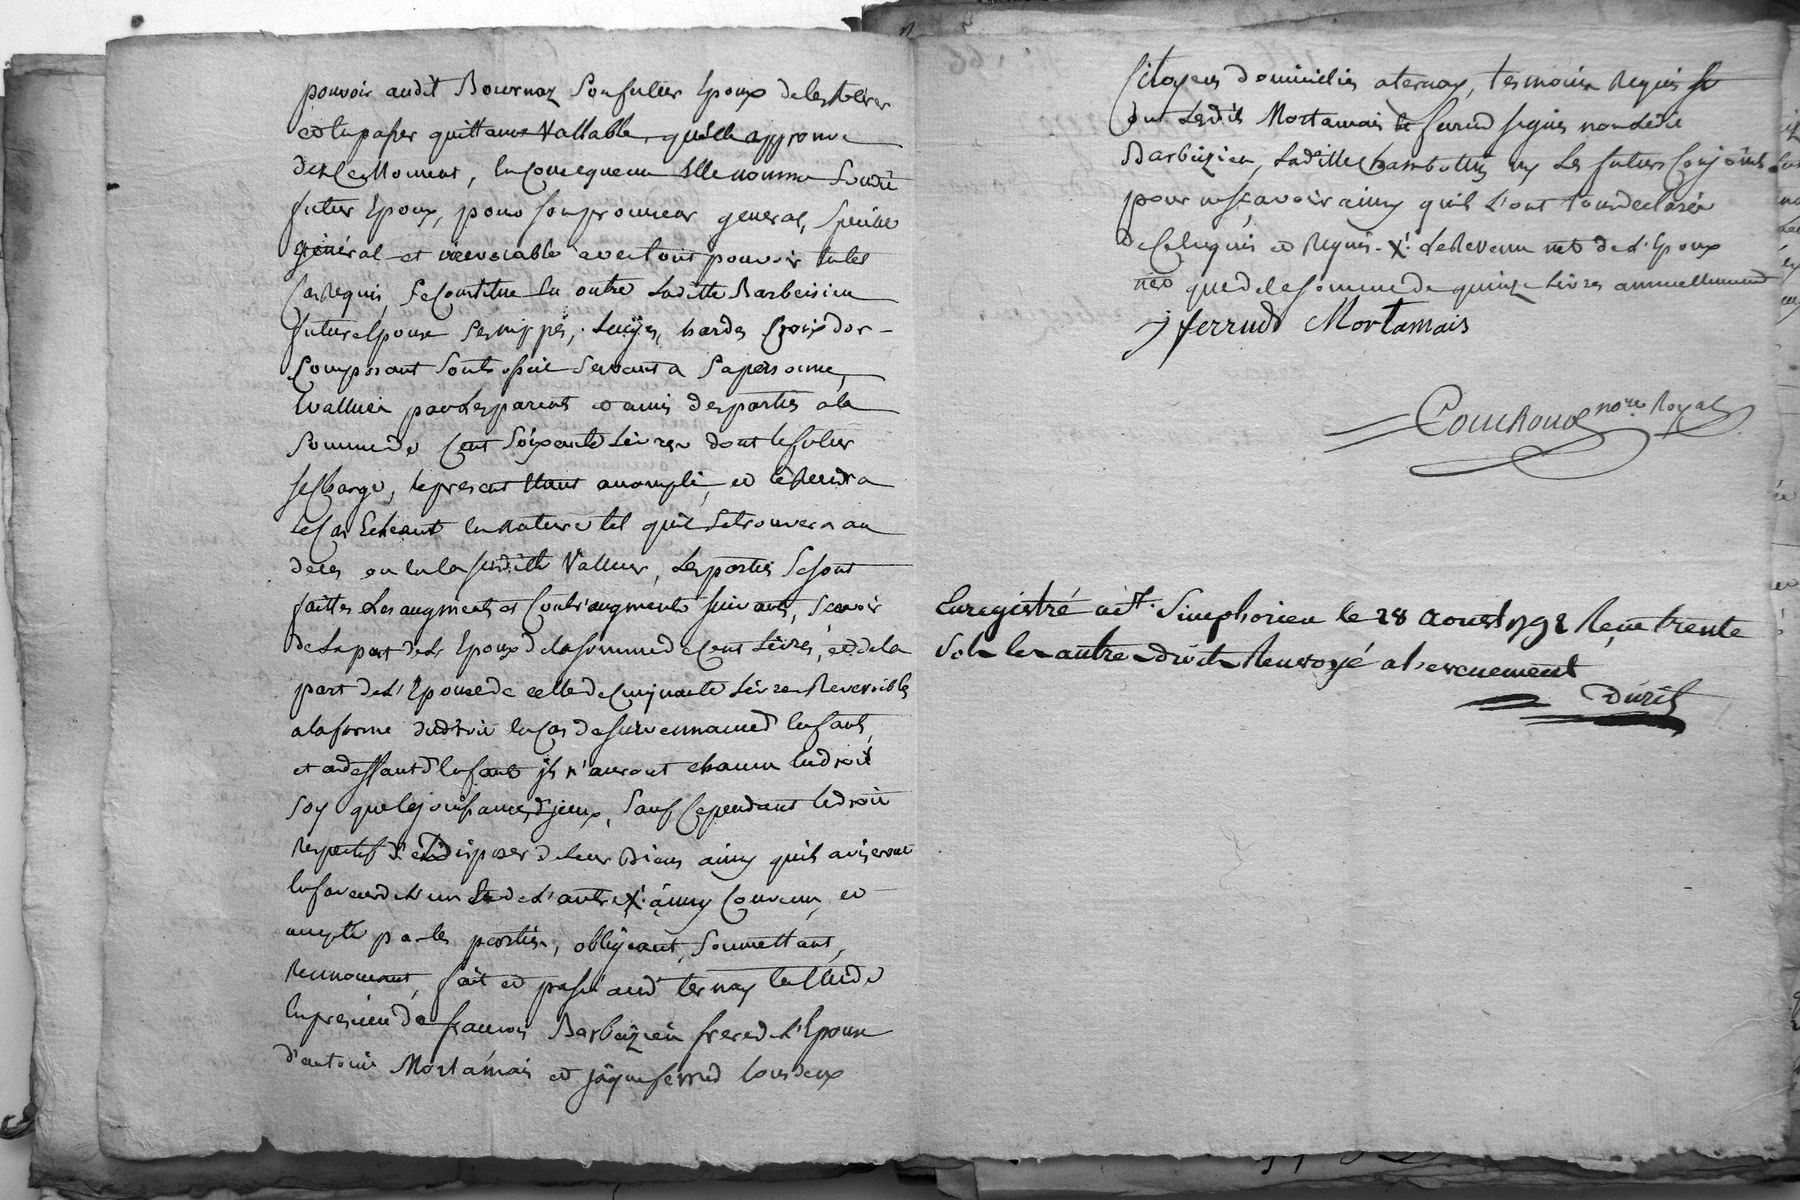 pouvoir audit Bournaz Son futur Epoux de les Retirer
et en passer quittance Vallable, quelle approuve
des ce Moment, En Consequence Elle nomme Sondit
futur Epoux, pour son procureur general, special
général et irrevocable avec tout pouvoir En tel
Cas Requis, Se Constitue En outre Laditte Barbeizieu
future Epouse Ses nippes, Linges, hardes Croix dor
Composant Son trossail Servant a Sa personne,
Evalluée par Les parents et amis des parties a la
Somme de Cent Soixante Livres dont le futur
Se Charge, le present accompli, et le Rendra
le Cas Echeant En Nature tel quil Se trouvera au
deces ou En la susditte Valleur, Les parties Se sont
faittes Les augments et Contr'augments suivants, Scavoir
de La part de L'Epoux de la somme de Cent Livres, et de la
part de L'Epouse de celle de Cinquante Livres Reversibles
a la forme du droit En Cas de survennance d'Enfants,
et au deffaut d'Enfants ils n'auront chacun En droit
Soy que la jouissance d'jceux, Sauf Cependant le droit
Respectif de disposer de Leur Biens ainsy quils aviseront
En faveur de L'un Et de L'autre X. ainsy Convenu, et
accepté par les parties, obligeant, Soumettant,
Rennonceant, fait et passé audit ternay Etude
En presence de francois Barbeizieu frere de L'Epouse
d'antoine Mortamais et jâque ferrud tous deux
Citoyens domiciliés a ternay, temoins Requis
dont Lesdits Mortamais ferrud signés non Ledit
Barbeizieu, Laditte Chambottu ny Les futurs Conjoints
pour ne scavoir ainsy quils L'ont tous declaré
de Ce Enquis et Requis. X. Le Revenu net de L'Epoux
net que de la somme de quinze Livres annuellement
j ferrud Mortamais
Couchoud nore Royal
Enregistré a St. Simphorien le 28 Aoust 1792 Reçu trente
Sols les autres droits Renvoyé a l'evenement
Duzel